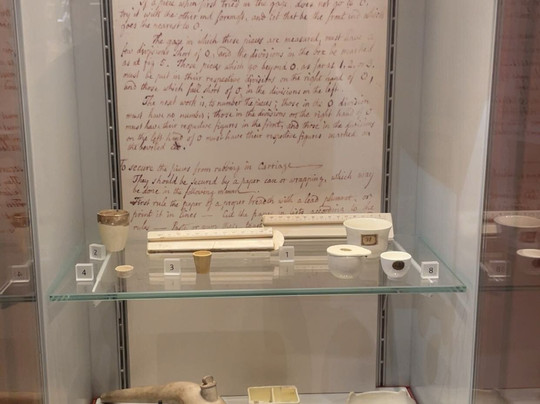 if a piece when first tried in the gage does not go to 0,
try it with the other end foremost, and let that be the front end which
goes the nearest to 0.
The gage in which these pieces are measured, must have a
few divisions short of 0, and the divisions in the box be marked
as at fig 2. Those pieces which go beyond 0, as far as 1, 2, or 3,
must be put in their respective divisions on the right hand of 0,
and those which fall short of 0, in the divisions on the left.
The next work is, to number the pieces; those in the 0 division
must have no number; those in the divisions on the right hand of 0
must have their respective figures in the front; and those in the divisions
on the left hand of 0 must have their respective figures marked on
the
To secure the pieces from rubbing in carriage
They should be secured by a paper case or wrapping, which may
be done in the following manner
First rule the paper of a proper breadth with a lead plummet, or
print it in lines
2
4
3
1
8